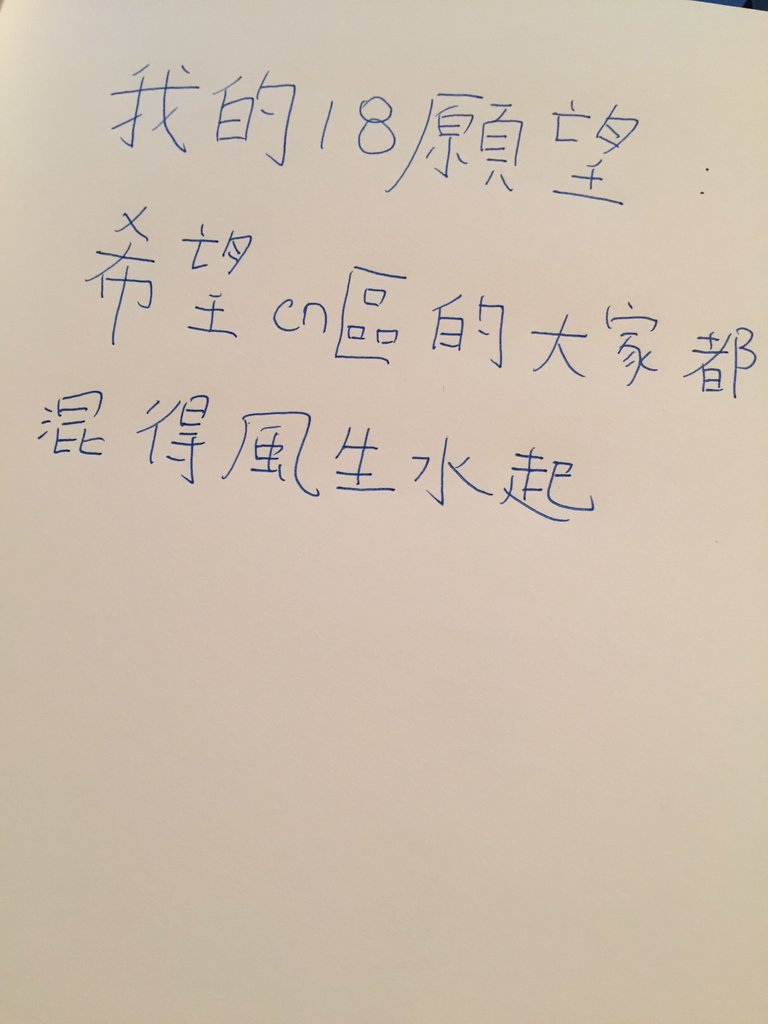 我的18願望:
希望cn區的大家都
混得風生水起